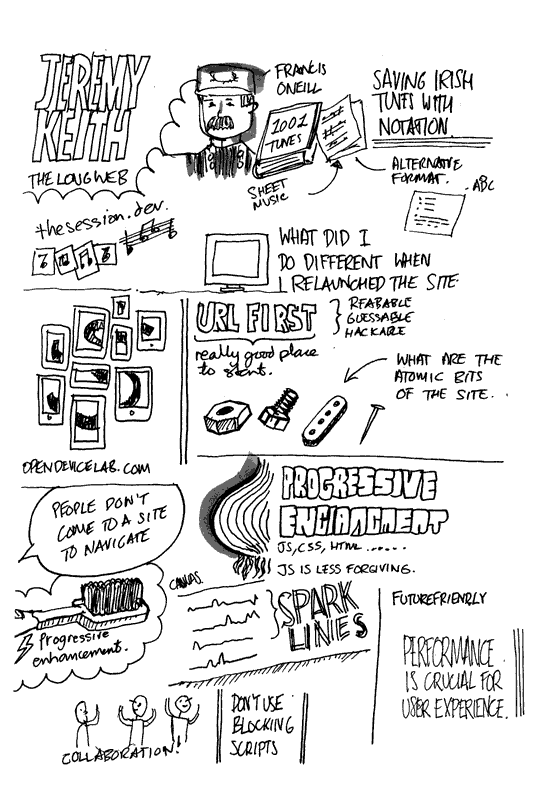 JEREMY
KEITH
THE LONG WEB
thesession.dev.
FRANCIS
ONEILL
1001
TUNES
SHEET
MUSIC
SAVING IRISH
TUNES WITH
NOTATION.
ALTERNATIVE
FORMAT.
.ABC
WHAT DID I
DO DIFFERENT WHEN
I RELAUNCHED THE SITE.
OPENDEVICELAB.COM
URL FIRST
REABABLE
GUESSABLE
HACKABLE
really good place
to start.
WHAT ARE THE
ATOMIC BITS
OF THE SITE...
PEOPLE DON'T
COME TO A SITE
TO NAVIGATE
PROGRESSIVE
ENGIANCMENT
JS, CSS, HTML......
JS IS LESS FORGIVING.
Progressive
enhancement.
CANVAS.
SPARK
LINES
FUTUREFRIENDLY
PERFORMANCE.
IS CRUCIAL FOR
USER EXPERIENCE.
COLLABORATION!
DON'T USE
BLOCKING
SCRIPTS